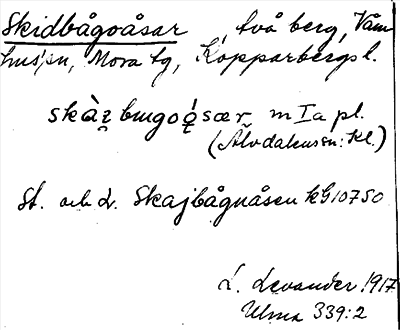 Skidbågoåsar två berg, Våm-
hussn, Mora tg, Kopparbergs l.
m I a pl.
(Älvdalenssn: Kl.)
St. och Lr. Skajbågnåsen KG 10750
L. Levander 1917
Ulma 339:2